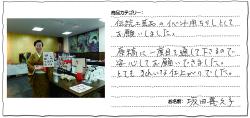 商品カテゴリー:
伝統工芸品のイベント用ちらしとして
お願いしました。
原稿に一度目を通して下さるので
安心してお願いできました。
とてもきれいな仕上がりでした。
お名前: 坂田喜久子